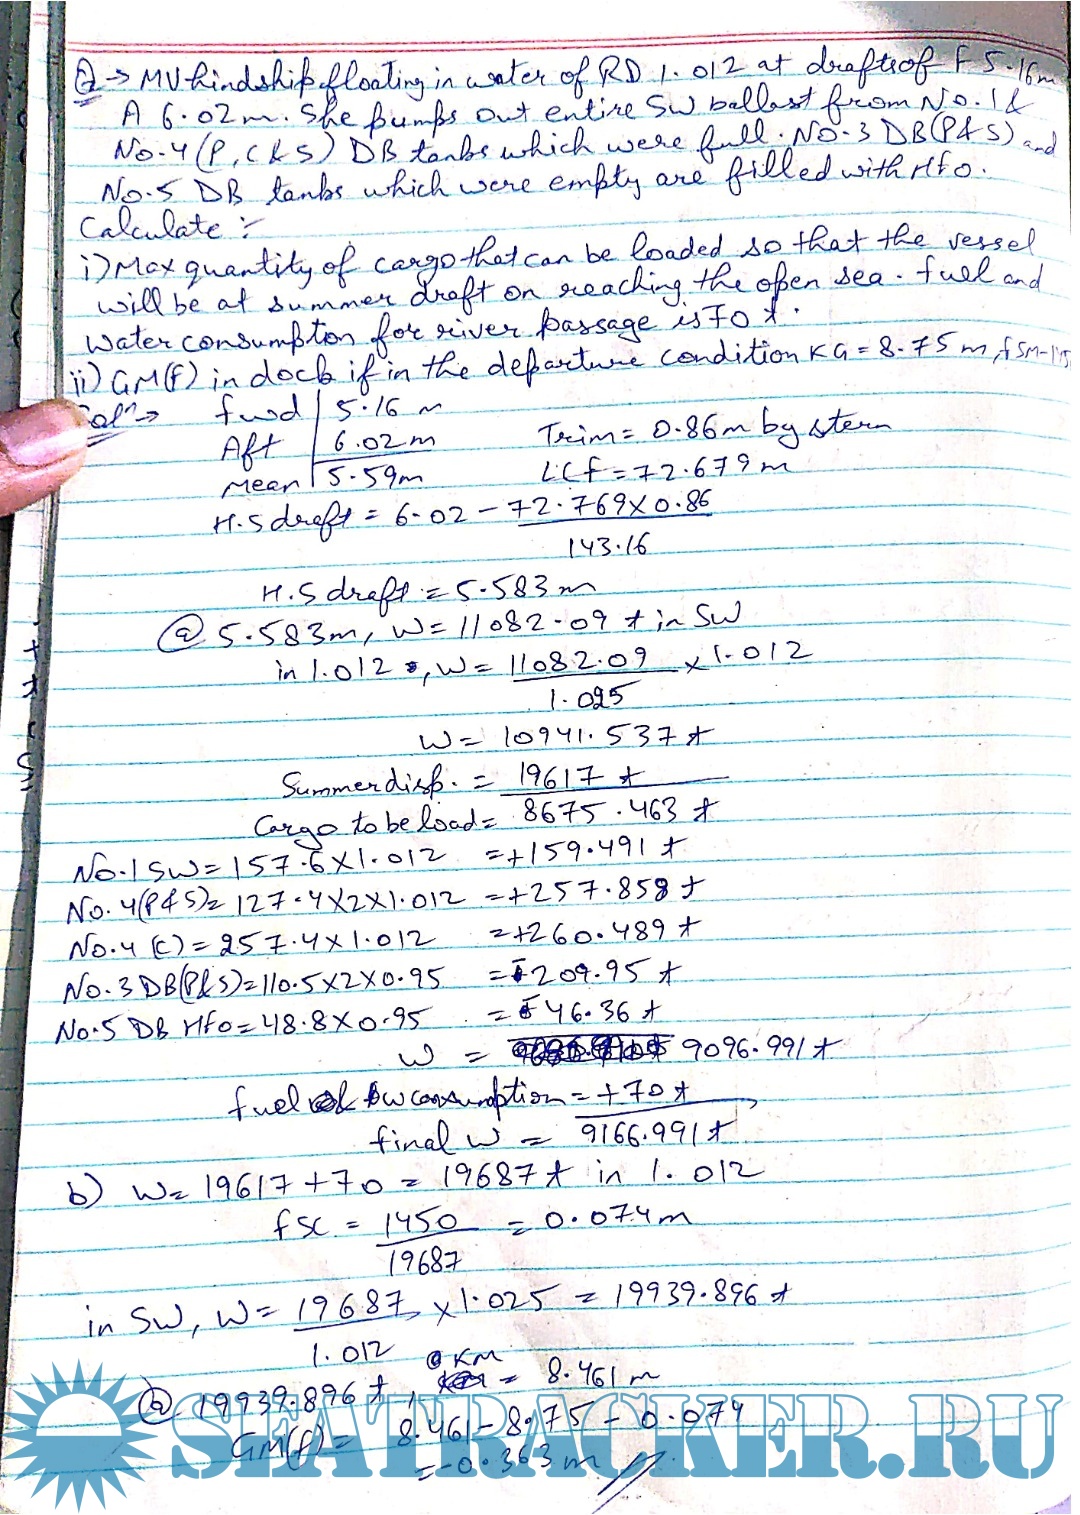 Q → MV hindship floating in water of RD 1.012 at drafts of F 5.16m
A 6.02m. She pumps out entire SW ballast from No.1 &
No.4 (P, C & S) DB tanks which were full. NO.3 DB(P&S) and
NO.5 DB tanks which were empty are filled with HFO.
Calculate :-
i) Max quantity of cargo that can be loaded so that the vessel
will be at summer draft on reaching the open sea. fuel and
water consumption for river passage is 70 t.
ii) GM(f) in dock if in the departure condition KG = 8.75 m, fSM-
Solⁿ→ fwd 5.16 m
Aft 6.02m Trim = 0.86m by stern
Mean 5.59m LCf = 72.679m
H.S draft = 6.02 - 72.769 x 0.86
143.16
H.S draft = 5.583m
@ 5.583m, W = 11082.09 t in SW
in 1.012, W = 11082.09 x 1.012
1.025
W = 10941.537 t
Summer disp. = 19617 t
Cargo to be load = 8675.463 t
No.1 SW = 157.6 x 1.012 = +159.491 t
No. 4(P&S) = 127.4 x 2 x 1.012 = +257.858 t
No.4 (C) = 257.4 x 1.012 = +260.489 t
No.3 DB(P&S) = 110.5 x 2 x 0.95 = -209.95 t
No.5 DB HFO = 48.8 x 0.95 = - 46.36 t
W = 9096.991 t
fuel & fw consumption = +70 t
final W = 9166.991 t
b) W = 19617 + 70 = 19687 t in 1.012
fSC = 1450 = 0.074m
19687
in SW, W = 19687 x 1.025 = 19939.896 t
1.012
@ 19939.896 t, KM = 8.461 m
GM(f) = 8.461 - 8.75 - 0.074
= -0.363m
SEATRACKER.RU